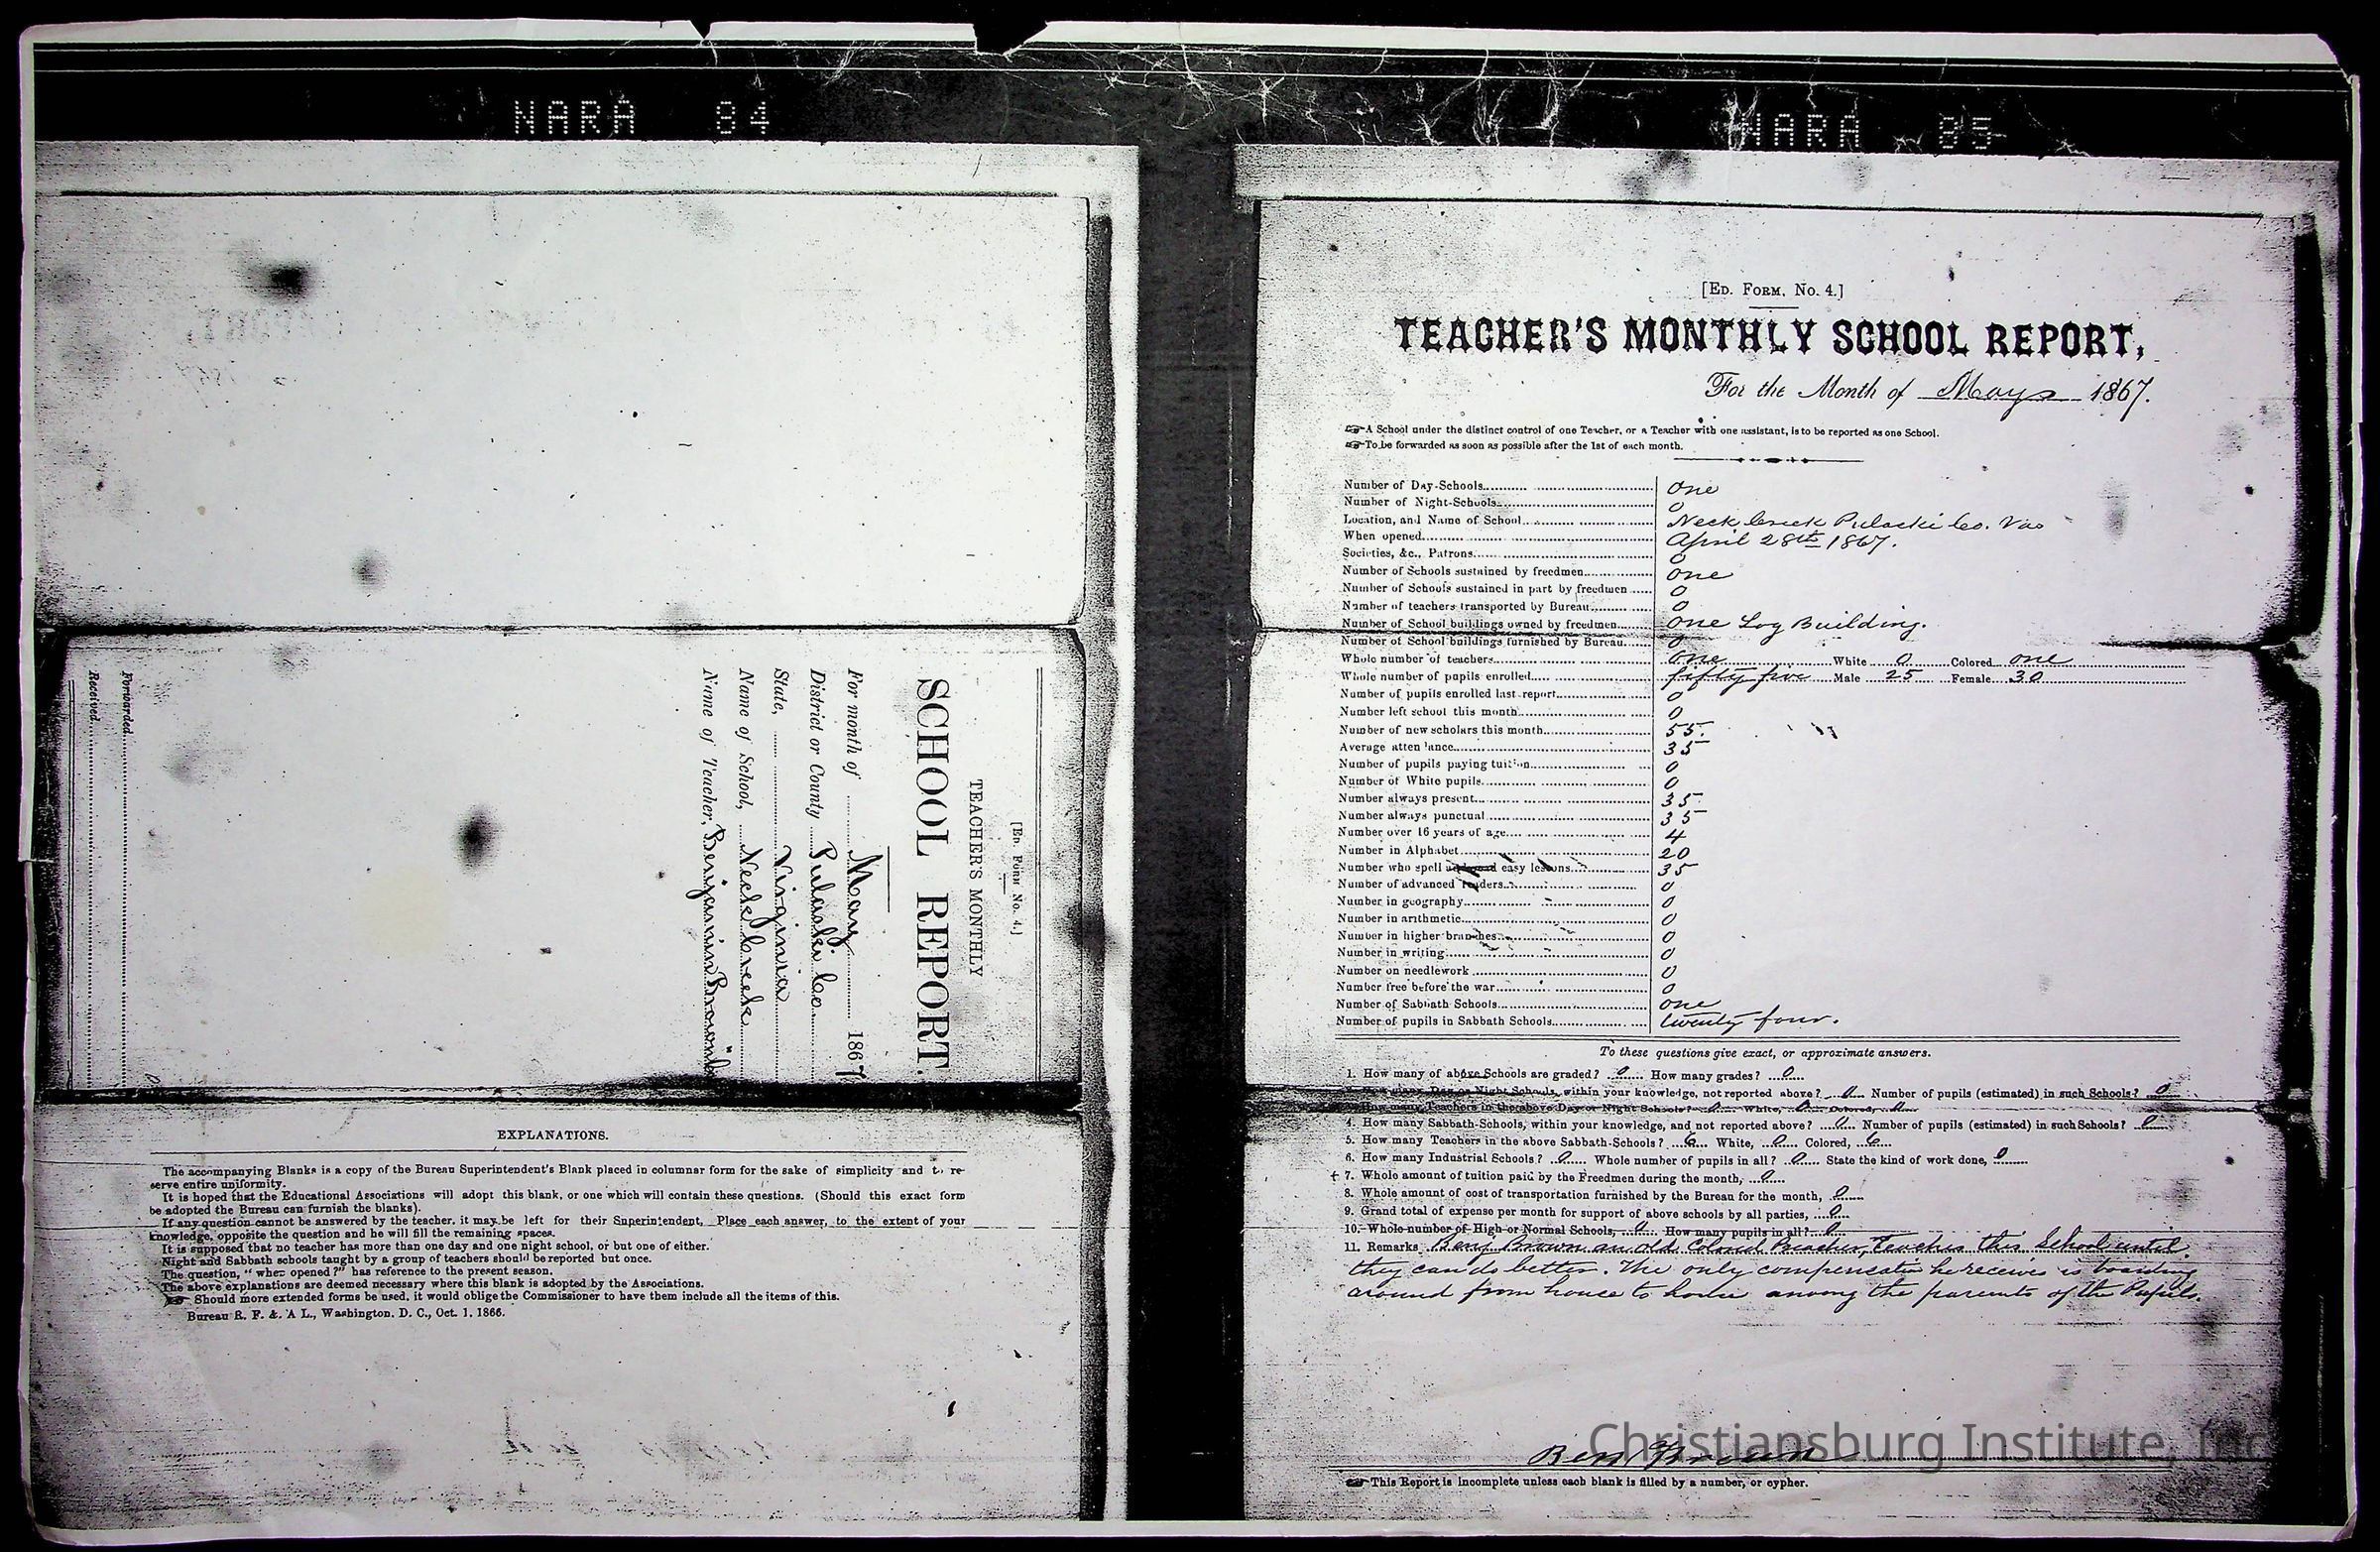 NARA 84
SCHOOL REPORT.
[Ed. Form No. 4.]
TEACHER'S MONTHLY
SCHOOL REPORT.
For month of May 1867
District or County Pulaski Co.
State, Virginia
Name of School, Neck Creek
Name of Teacher, Benjamin Brown
Forwarded
Received
EXPLANATIONS.
The accompanying Blanks is a copy of the Bureau Superintendent's Blank placed in columnar form for the sake of simplicity and to re-
serve entire uniformity.
It is hoped that the Educational Associations will adopt this blank, or one which will contain these questions. (Should this exact form
be adopted the Bureau can furnish the blanks).
If any question cannot be answered by the teacher, it may be left for their Superintendent, Place each answer, to the extent of your
knowledge, opposite the question and he will fill the remaining spaces.
It is supposed that no teacher has more than one day and one night school, or but one of either.
Night and Sabbath schools taught by a group of teachers should be reported but once.
The question, "when opened?" has reference to the present season.
The above explanations are deemed necessary where this blank is adopted by the Associations.
Should more extended forms be used, it would oblige the Commissioner to have them include all the items of this.
Bureau R. F. & A L., Washington, D. C., Oct. 1, 1866.
NARA 85
[Ed. Form, No. 4.]
TEACHER'S MONTHLY SCHOOL REPORT,
For the Month of May 1867.
A School under the distinct control of one Teacher, or a Teacher with one assistant, is to be reported as one School.
To be forwarded as soon as possible after the 1st of each month.
Number of Day-Schools one
Number of Night-Schools 0
Location, and Name of School Neck Creek Pulaski Co. Va
When opened April 28th 1867.
Societies, &c., Patrons 0
Number of Schools sustained by freedmen one
Number of Schools sustained in part by freedmen 0
Number of teachers transported by Bureau 0
Number of School buildings owned by freedmen one Log Building.
Number of School buildings furnished by Bureau 0
Whole number of teachers one White 0 Colored one
Whole number of pupils enrolled fifty five Male 25 Female 30
Number of pupils enrolled last report 0
Number left school this month 0
Number of new scholars this month 55.
Average attendance 35
Number of pupils paying tuition 0
Number of White pupils 0
Number always present 35
Number always punctual 35
Number over 16 years of age 4
Number in Alphabet 20
Number who spell and read easy lessons 35
Number of advanced readers 0
Number in geography 0
Number in arithmetic 0
Number in higher branches 0
Number in writing 0
Number on needlework 0
Number free before the war 0
Number of Sabbath Schools one
Number of pupils in Sabbath Schools twenty four.
To these questions give exact, or approximate answers.
1. How many of above Schools are graded? 0 How many grades? 0
How many Day or Night Schools, within your knowledge, not reported above? 0 Number of pupils (estimated) in such Schools? 0
How many Teachers in the above Day or Night Schools? 0 White, 0 Colored, 0
4. How many Sabbath-Schools, within your knowledge, and not reported above? 0 Number of pupils (estimated) in such Schools? 0
5. How many Teachers in the above Sabbath-Schools? 6 White, 0 Colored, 6
6. How many Industrial Schools? 0 Whole number of pupils in all? 0 State the kind of work done, 0
† 7. Whole amount of tuition paid by the Freedmen during the month, 0
8. Whole amount of cost of transportation furnished by the Bureau for the month, 0
9. Grand total of expense per month for support of above schools by all parties, 0
10. Whole number of High or Normal Schools, 0 How many pupils in all? 0
11. Remarks Benj. Brown an old Colored Preacher, Teaches this School until
they can do better. The only compensation he receives is boarding
around from house to house among the parents of the Pupils.
Ben Brown
This Report is incomplete unless each blank is filled by a number, or cypher.
Christiansburg Institute, Inc